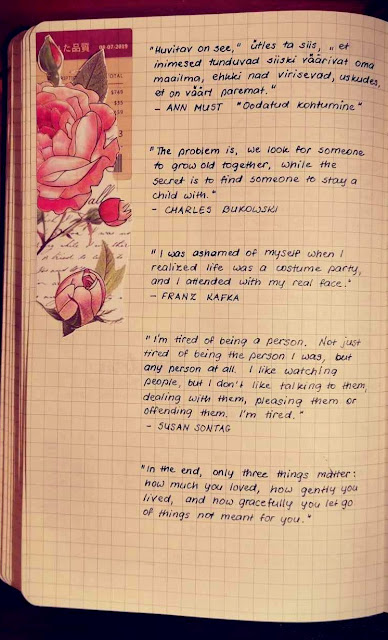 た品質
09-07-2019
TOTAL
$749
$35
$59
"Huvitav on see," ütles ta siis, "et
inimesed tunduvad siiski väärivat oma
maailma, ehkki nad virisevad, uskudes,
et on väärt paremat."
- ANN MUST "Oodatud kohtumine"
"The problem is, we look for someone
to grow old together, while the
secret is to find someone to stay a
child with."
- CHARLES BUKOWSKI
"I was ashamed of myself when I
realized life was a costume party,
and I attended with my real face."
- FRANZ KAFKA
"I'm tired of being a person. Not just
tired of being the person I was, but
any person at all. I like watching
people, but I don't like talking to them,
dealing with them, pleasing them or
offending them. I'm tired."
- SUSAN SONTAG
"In the end, only three things matter:
how much you loved, how gently you
lived, and how gracefully you let go
of things not meant for you."